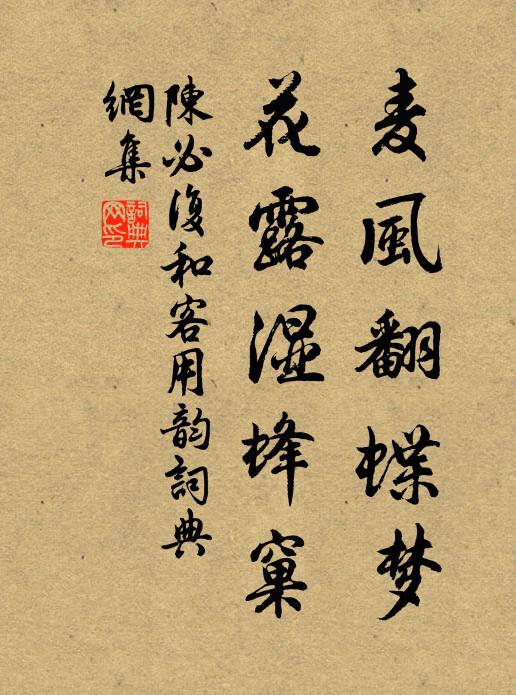 麦風翻蝶梦
花露湿蜂窠
陳必復和客用韵詞典
網集
詞典網印